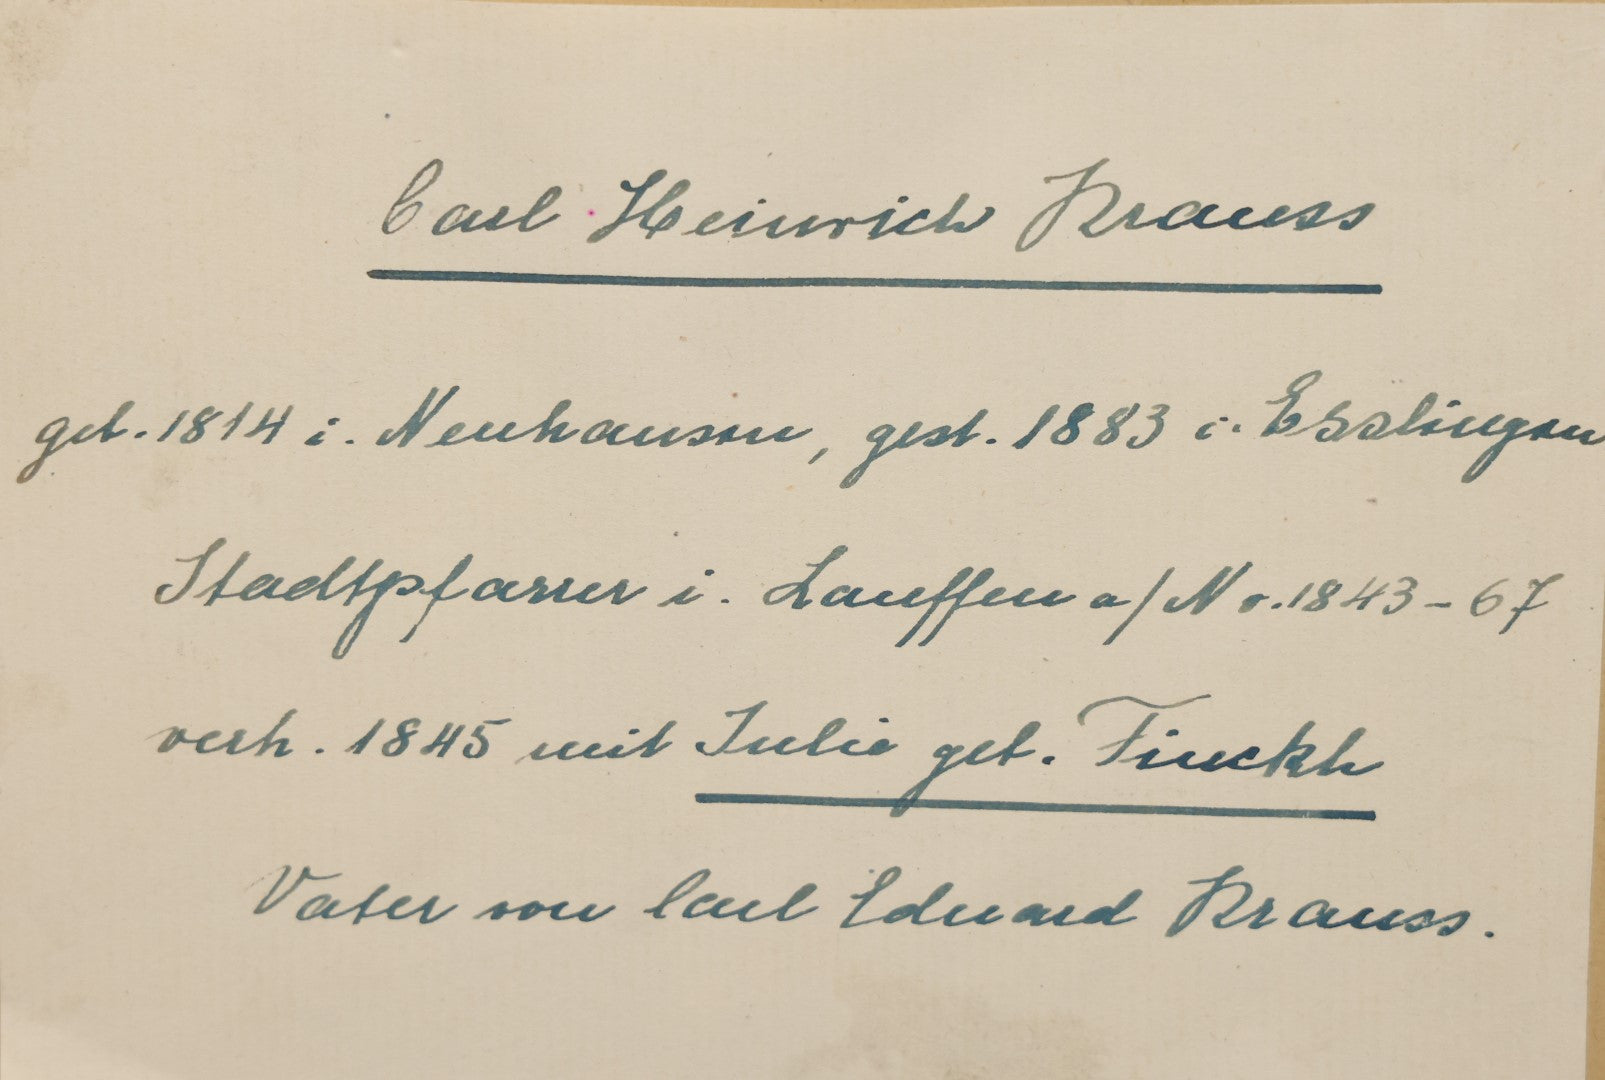 Carl Heinrich Krauss
geb. 1814 i. Neuhausen, gest. 1883 i. Esslingen
Stadtpfarrer i. Lauffen a/N v. 1843-67
verh. 1845 mit Julie geb. Finckh
Vater von Carl Eduard Krauss.